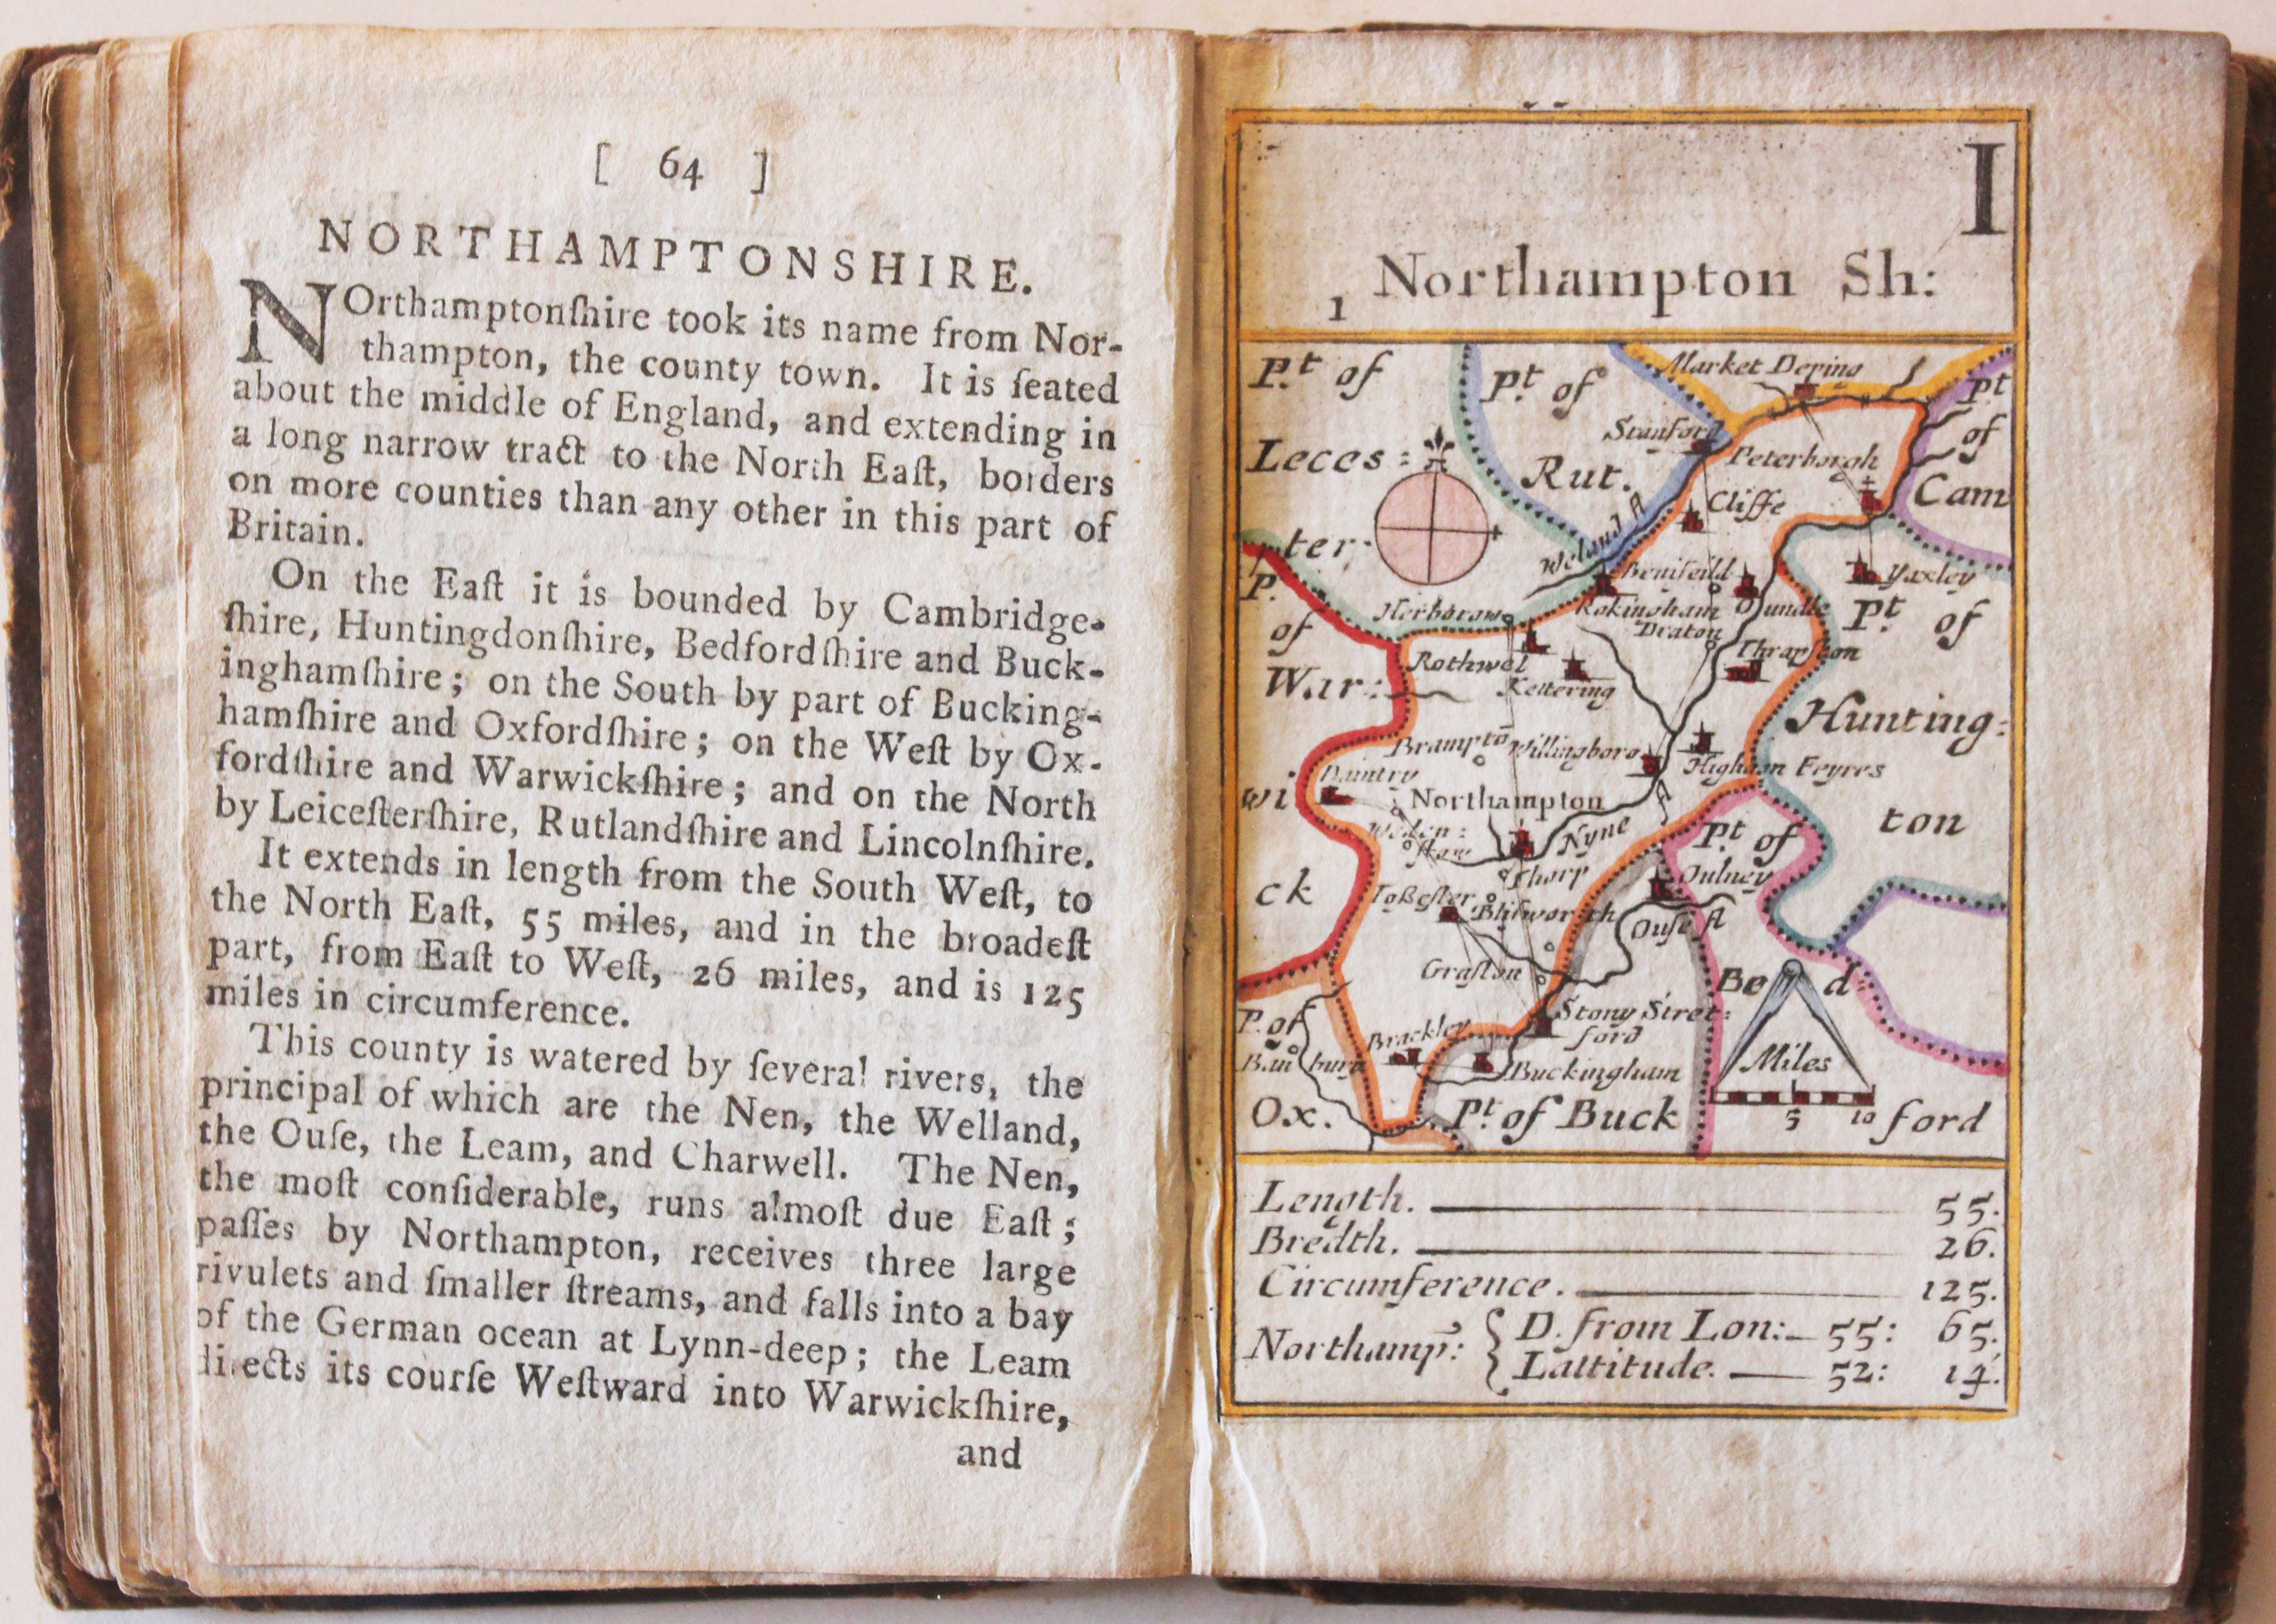 [ 64 ]
NORTHAMPTONSHIRE.
NOrthamptonſhire took its name from Nor-
thampton, the county town. It is ſeated
about the middle of England, and extending in
a long narrow tract to the North Eaſt, borders
on more counties than any other in this part of
Britain.
On the Eaſt it is bounded by Cambridge-
ſhire, Huntingdonſhire, Bedfordſhire and Buck-
inghamſhire; on the South by part of Bucking-
hamſhire and Oxfordſhire; on the Weſt by Ox-
fordſhire and Warwickſhire; and on the North
by Leiceſterſhire, Rutlandſhire and Lincolnſhire.
It extends in length from the South Weſt, to
the North Eaſt, 55 miles, and in the broadeſt
part, from Eaſt to Weſt, 26 miles, and is 125
miles in circumference.
This county is watered by ſeveral rivers, the
principal of which are the Nen, the Welland,
the Ouſe, the Leam, and Charwell. The Nen,
the moſt conſiderable, runs almoſt due Eaſt;
paſſes by Northampton, receives three large
rivulets and ſmaller ſtreams, and falls into a bay
of the German ocean at Lynn-deep; the Leam
directs its courſe Weſtward into Warwickſhire,
and
I
1 Northampton Sh:
P.t of
Leces:
ter:
P.t of
Rut.
Market Deping
Pt
of
Cam
Stanford
Peterborgh
Cliffe
Weland R
Benifeild
Yaxley
P.
of
War:
wi
ck
Herborow
Rokingham
Oundle
Pt of
Hunting:
ton
Draton
Thrapston
Rothwel
Kettering
Brampto
Willingboro
Higham Feyres
Daintry
Northampton
Nyne
Pt of
Be d:
ford
Oulney
Thorp
Toßester
Blisworth
Ouſe fl
Grafton
P. of
Ban bury
Ox.
Stony Stret:
ford
Brackley
Buckingham
Pt of Buck
Miles
5 10
Length. 55.
Bredth. 26.
Circumference. 125.
Northamp: { D. from Lon: 55: 65.
Lattitude. 52: 14.